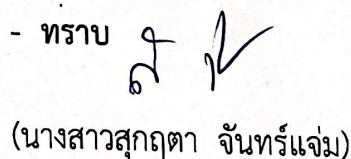 - ทราบ
(นางสาวสุกฤตา จันทร์แจ่ม)